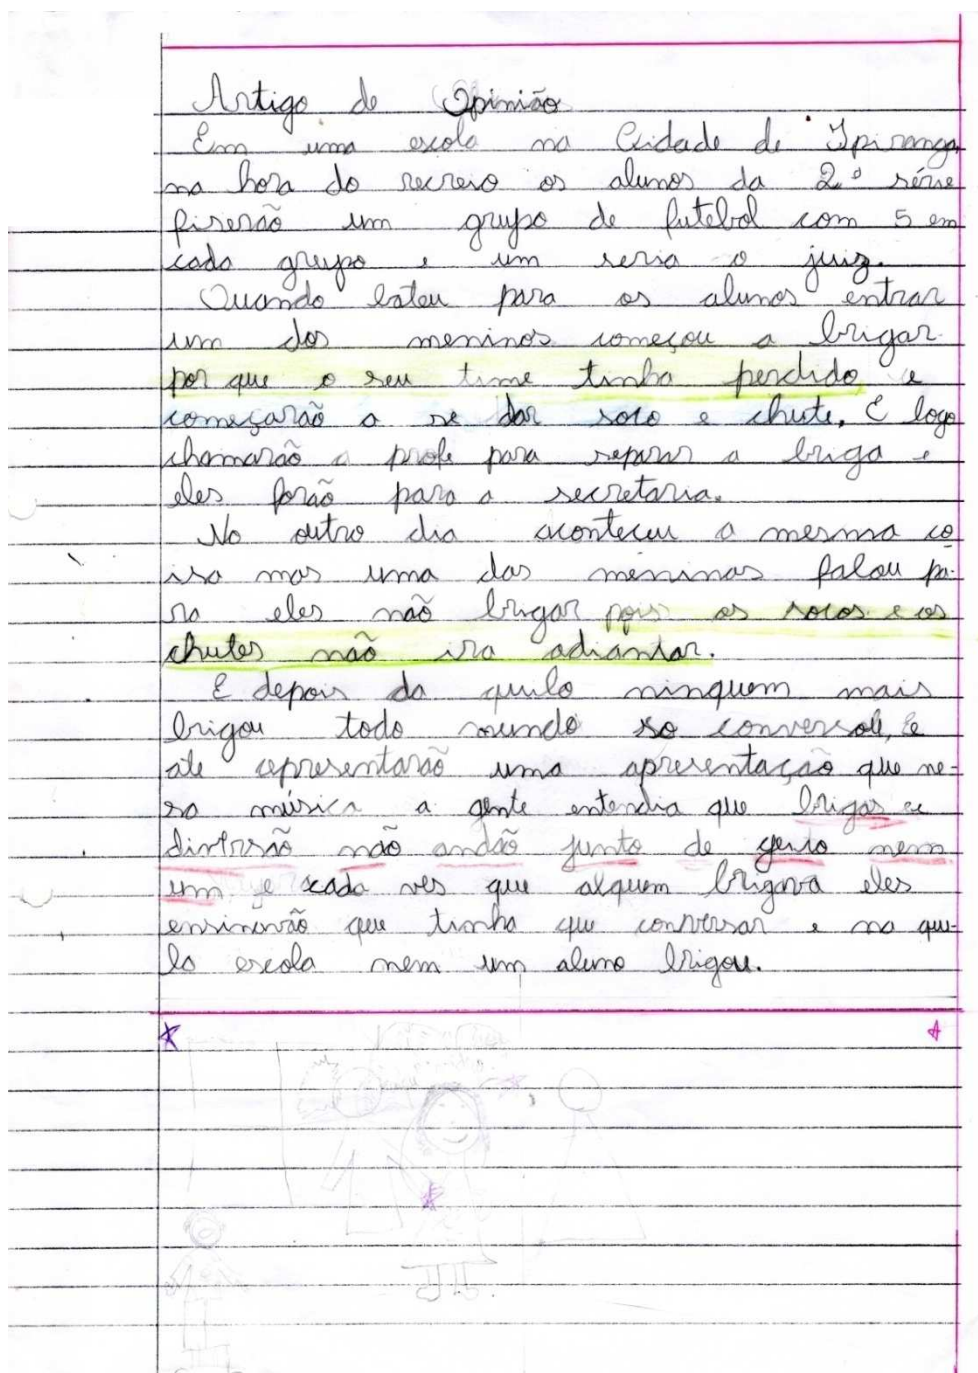 Artigo de Opinião
Em uma escola na Cidade de Ipiranga,
na hora do recreio os alunos da 2º série
fiserão um grupo de futebol com 5 em
cada grupo e um seria o juiz.
Quando bateu para os alunos entrar
um dos meninos começou a brigar
por que o seu time tinha perdido e
começarão a se dar soco e chute. E logo
chamarão a profe para separar a briga e
eles forão para a secretaria.
No outro dia aconteceu a mesma co
isa mas uma das meninas falou pa-
ra eles não brigar pois os socos e os
chutes não ira adiantar.
E depois da quilo ninguem mais
brigou todo mundo so conversou, e
ate apresentarão uma apresentação que ne-
sa música a gente entendia que brigas e
diversão não andão junto de geito nem
um e cada ves que alguem brigava eles
ensinavão que tinha que conversar e na que-
la escola nem um aluno brigou.